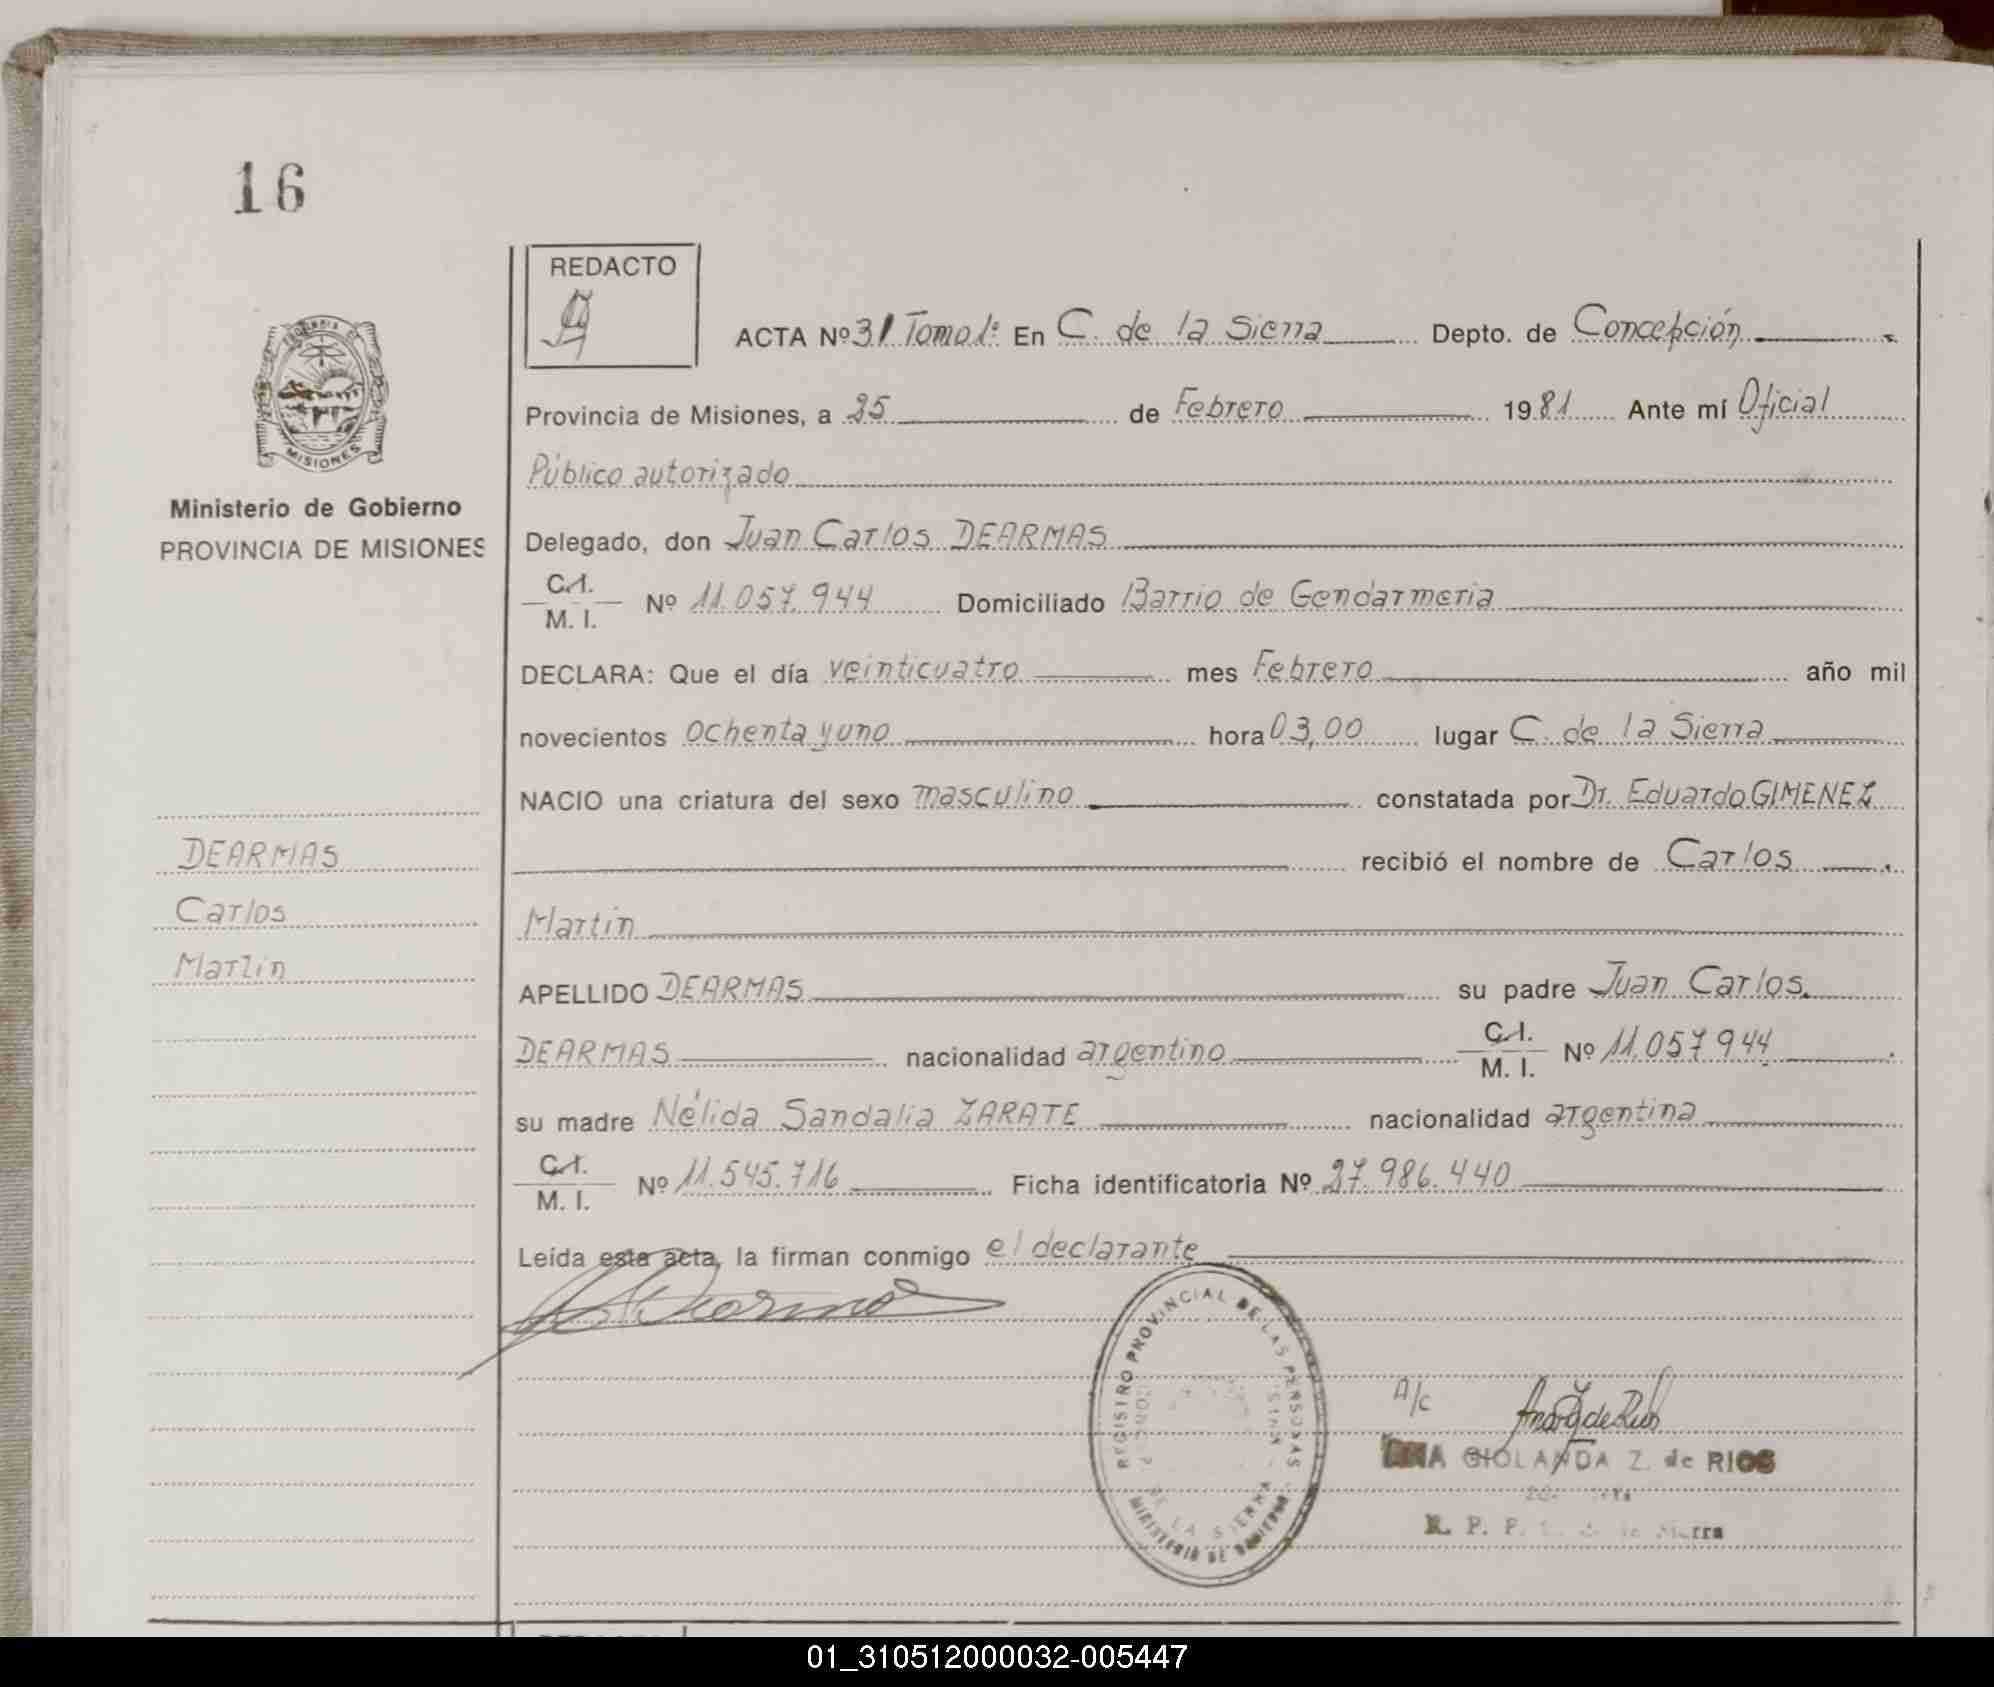 16
REDACTO
ACTA Nº 31 Tomo 1º En C. de la Sierra Depto. de Concepción
Provincia de Misiones, a 25 de Febrero 1981 Ante mí Oficial
Público autorizado
MISIONES
Ministerio de Gobierno
PROVINCIA DE MISIONES
Delegado, don Juan Carlos DEARMAS
C.I.
M. I. Nº 11.057.944 Domiciliado Barrio de Gendarmeria
DECLARA: Que el día veinticuatro mes Febrero año mil
novecientos ochenta y uno hora 03,00 lugar C. de la Sierra
NACIO una criatura del sexo masculino constatada por Dr. Eduardo GIMENEZ
recibió el nombre de Carlos
Martin
DEARMAS
Carlos
Martin
APELLIDO DEARMAS su padre Juan Carlos.
DEARMAS nacionalidad argentino C.I.
M. I. Nº 11.057.944
su madre Nélida Sandalia ZARATE nacionalidad argentina
C.I.
M. I. Nº 11.545.716 Ficha identificatoria Nº 27.986.440
Leída esta acta, la firman conmigo el declarante
REGISTRO PROVINCIAL DE LAS PERSONAS
DE LA SIERRA
MINISTERIO DE GOBIERNO
A/c
ANA GIOLANDA Z. de RIOS
R. P. P. C. de la Sierra
01_310512000032-005447